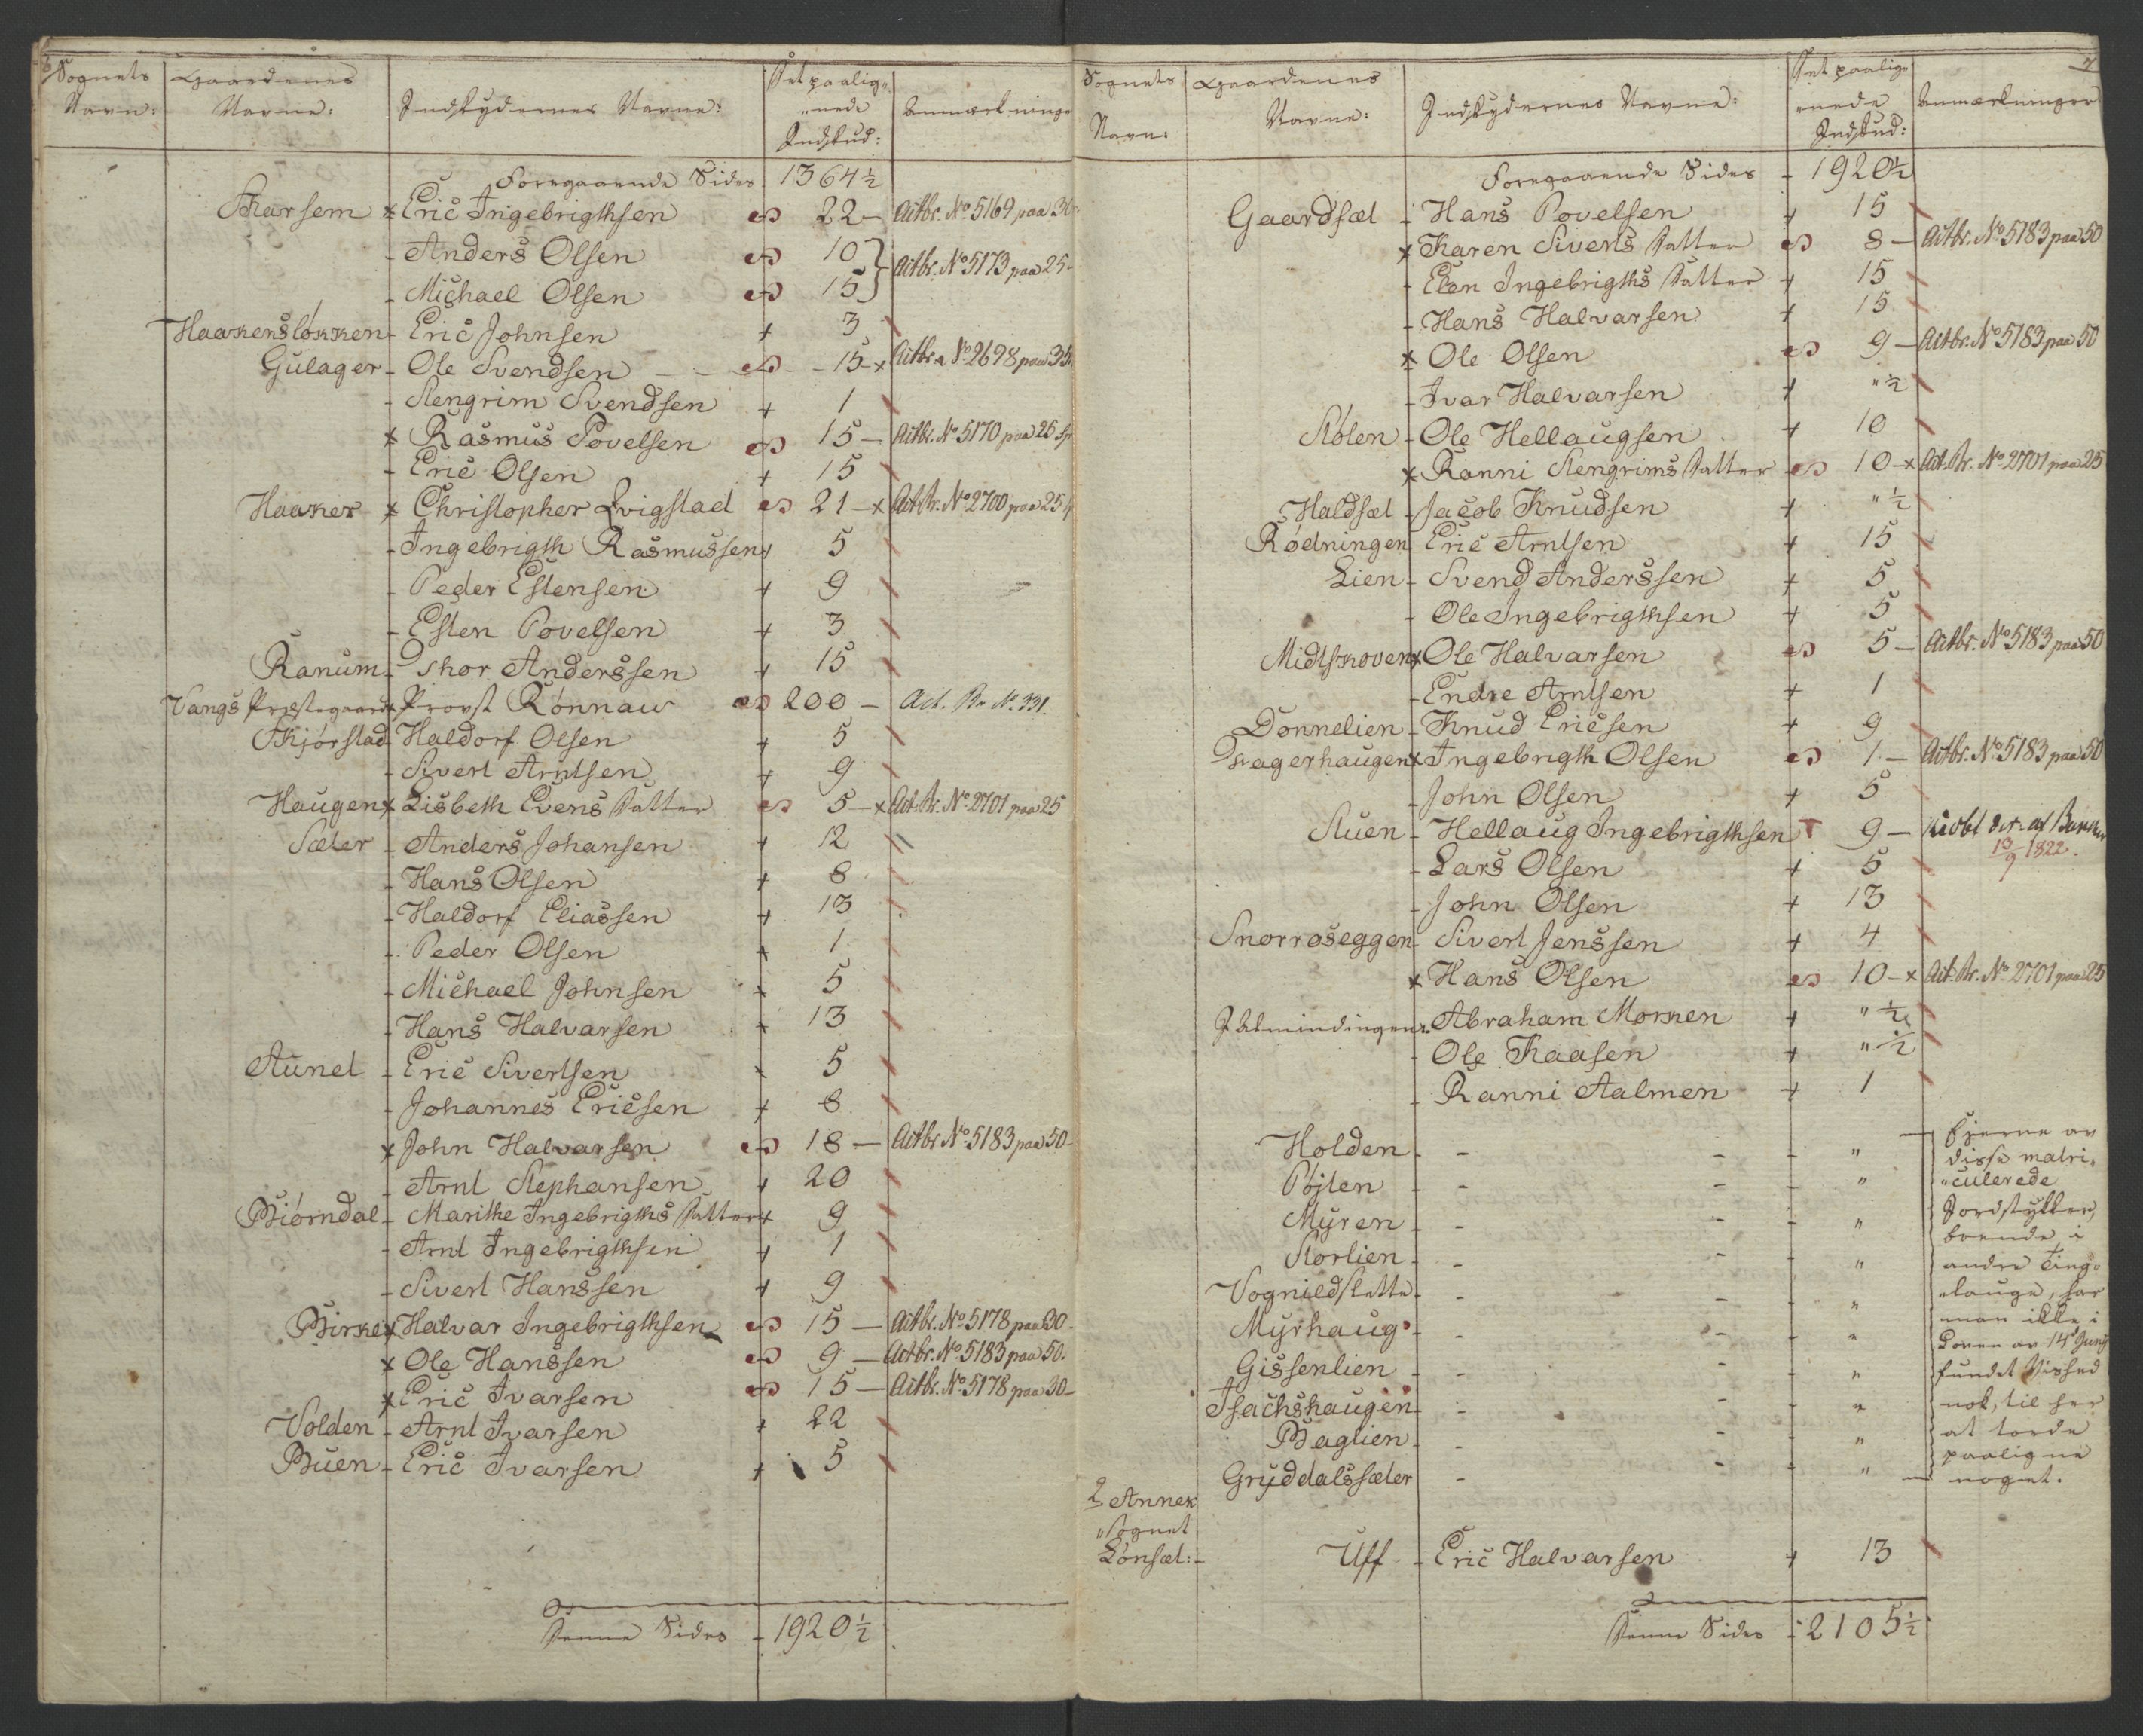 6
Sognets Navn: Gaardenes Navne: Indskydernes Navne: Det paalig„ „nede Indskud: Anmærkninge
Foregaaende Sides 1364½
Skarsem x Eric Ingebrigthsen 22 – Actbr. No 5169 paa 30
- Anders Olsen 10 } Actbr. No 5173 paa 25-
- Michael Olsen 15 }
Haakensløkken - Eric Johnsen + 3
Gulager - Ole Svendsen 15 x Actbr. No 2698 paa 35
- Stengrim Svendsen + 1
x Rasmus Povelsen 15 – Actbr. No 5170 paa 25 Sp
- Eric Olsen + 15
Haaker x Christopher Qvigstad 21 – x Act. Br. No 2700 paa 25
- Ingebrigth Rasmussen + 5
- Peder Estensen + 9
- Esten Povelsen + 3
Ranum - Thor Anderssen + 15
Vangs Præstegaard x Provst Rønnau 200 – Act. Br No. 331.
Skjørstad - Haldorf Olsen + 5
- Sivert Arntsen + 9
Haugen x Lisbeth Evens Datter 5 – x Act. Br. No 2701 paa 25
Sæter - Anders Johansen + 12
- Hans Olsen + 8
- Haldorf Eliassen + 13
- Peder Olsen + 1
- Michael Johnsen + 5
- Hans Halvarsen + 13
Aunet - Eric Sivertsen + 5
- Johannes Ericsen + 8
x John Halvarsen 18 – Actbr No 5183 paa 50-
- Arnt Stephansen + 20
Biørndal - Marithe Ingebrigths Datter + 9
- Arnt Ingebrigthsen + 1
- Sivert Hanssen + 9
Birke x Halvar Ingebrigthsen 15 – Actbr. No 5178 paa 30-
x Ole Hanssen 9 – Actbr. No 5183 paa 50.
x Eric Ivarsen 15 – Actbr. No 5178 paa 30-
Volden - Arnt Ivarsen + 22
Buen - Eric Ivarsen + 5
Denne Sides - 1920½
7
Sognets Navn: Gaardenes Navne: Indskydernes Navne: Det paalig„ „nede Indskud: Anmærkninger
Foregaaende Sides - 1920½
Gaardsæt - Hans Povelsen + 15
x Karen Siverts Datter 8 – Actbr. No 5183 paa 50
- Elen Ingebrigths Datter + 15
- Hans Halvarsen + 15
x Ole Olsen 9 – Actbr. No 5183 paa 50
- Ivar Halvarsen + „½
Stølen - Ole Hellaugsen + 10
x Ranni Stengrims Datter 10 – x Act. Br. No 2701 paa 25
Haldsæt - Jacob Knudsen + „½
Rødningen Eric Arntsen + 15
Lien - Svend Anderssen + 5
- Ole Ingebrigthsen + 5
Midtskoven x Ole Halvarsen 5 – Actbr. No 5183 paa 50
- Endre Arntsen + 1
Donnelien - Knud Ericsen + 9
Fagerhaugen x Ingebrigth Olsen 1 – Actbr. No 5183 paa 50
- John Olsen + 5
Stuen - Hellaug Ingebrigthsen T 9 –
13/9 1822.
- Lars Olsen + 5
- John Olsen + 13
Snorroseggen - Sivert Jenssen + 4
x Hans Olsen 10 – x Act. Br. No 2701 paa 25
I Almindingen - Abraham Morken + „½
- Ole Kaasen + „½
- Ranni Aalmen + 1
Holden - - - - „
Pøjten - - - - „
Myren - - - - „
Storlien - - - - „
Vognildslette - - - - „
Myrhaug - - - - „
Gissenlien - - - - „
Isachshaugen - - - - „
Baglien - - - - „
Gryddalssæter - - - „
Ejerne av
disse matri„
„culerede
Jordstykker,
boende i
andre Ting„
„lauge, har
man ikke i
Loven av 14d Juny
fundet Vished
nok, til her
at torde
paaligne
noget.
2 Annex
„Sognet
Lønsæt: - Uff - Eric Halvarsen + 13
Denne Sides - 2105½